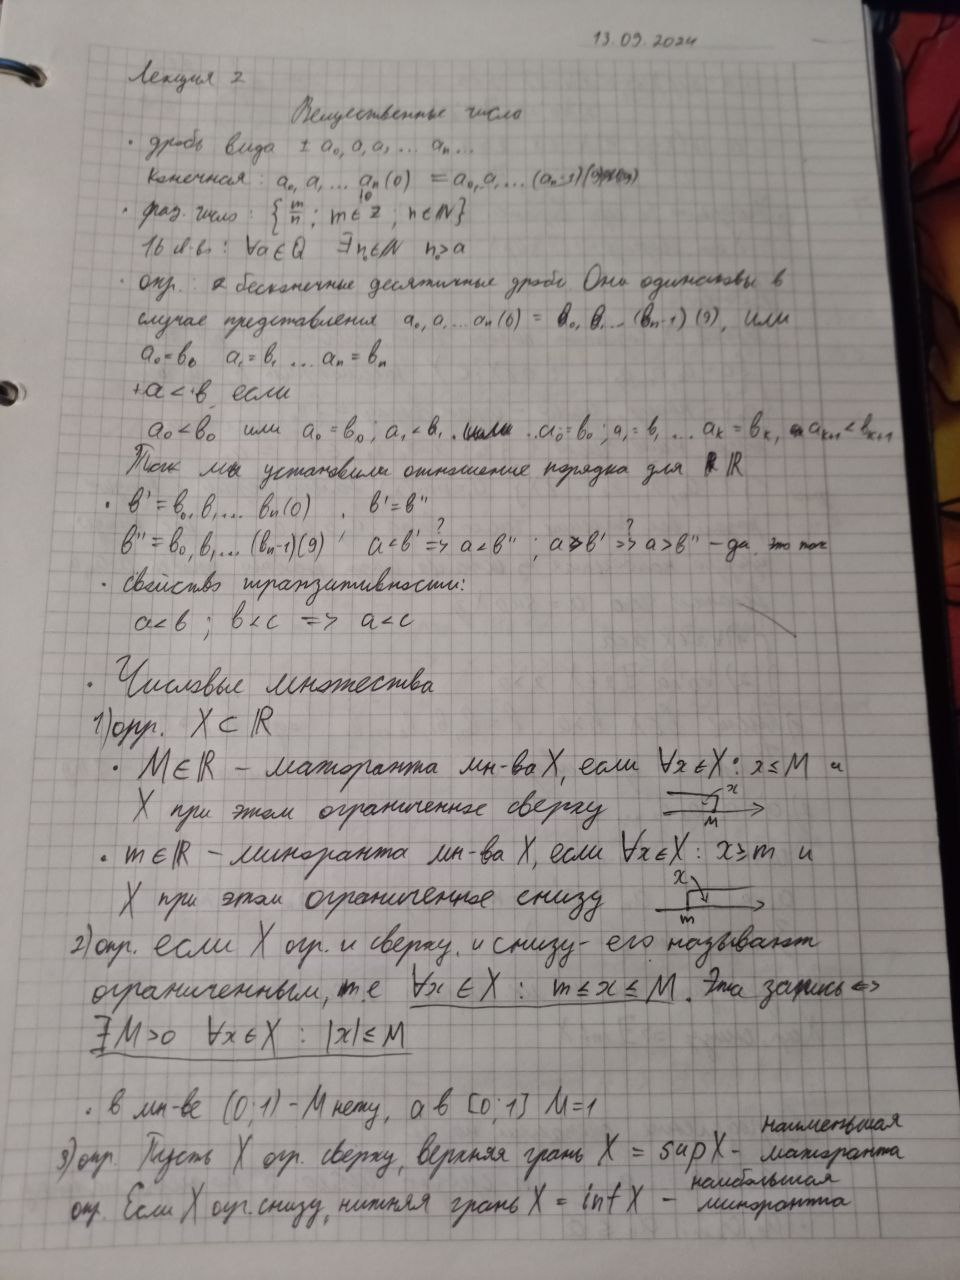 13.09.2024
Лекция 2
Вещественные числа
• дробь вида ± a₀, a₁ a₂ ... aₙ ...
конечная : a₀, a₁ ... aₙ (0) = a₀, a₁ ... (aₙ-1)(9)
• рац. число : { m/n ; m ∈ Z ; n ∈ N }
∀a ∈ Q ∃n₀ ∈ N n₀ > a
• опр. : бесконечные десятичные дроби. Они одинаковы в
случае представления a₀, a₁ ... aₙ (0) = b₀, b₁ ... (bₙ-1)(9), или
a₀ = b₀ a₁ = b₁ ... aₙ = bₙ
+a < +b, если
a₀ < b₀ или a₀ = b₀ ; a₁ < b₁ . или . a₀ = b₀ ; a₁ = b₁ ... aₖ = bₖ, aₖ₊₁ < bₖ₊₁
Так мы установили отношение порядка для R
• b' = b₀, b₁ ... bₙ (0) , b' = b''
b'' = b₀, b₁ ... (bₙ-1)(9) , a < b' ?=> a < b'' ; a > b' ?=> a > b'' – да, это так
• свойство транзитивности:
a < b ; b < c => a < c
• Числовые множества
1) опр. X ⊂ R
• M ∈ R – мажоранта мн-ва X, если ∀x ∈ X : x ≤ M и
X при этом ограниченное сверху
x
M
• m ∈ R – миноранта мн-ва X, если ∀x ∈ X : x ≥ m и
X при этом ограниченное снизу
x
m
2) опр. если X огр. и сверху, и снизу - его называют
ограниченным, т.е ∀x ∈ X : m ≤ x ≤ M. Эта запись <=>
∃ M > 0 ∀x ∈ X : |x| ≤ M
• в мн-ве (0;1) - M нету, а в [0;1] M = 1
3) опр. Пусть X огр. сверху, верхняя грань X = sup X - наименьшая мажоранта
опр. Если X огр. снизу, нижняя грань X = inf X - наибольшая миноранта